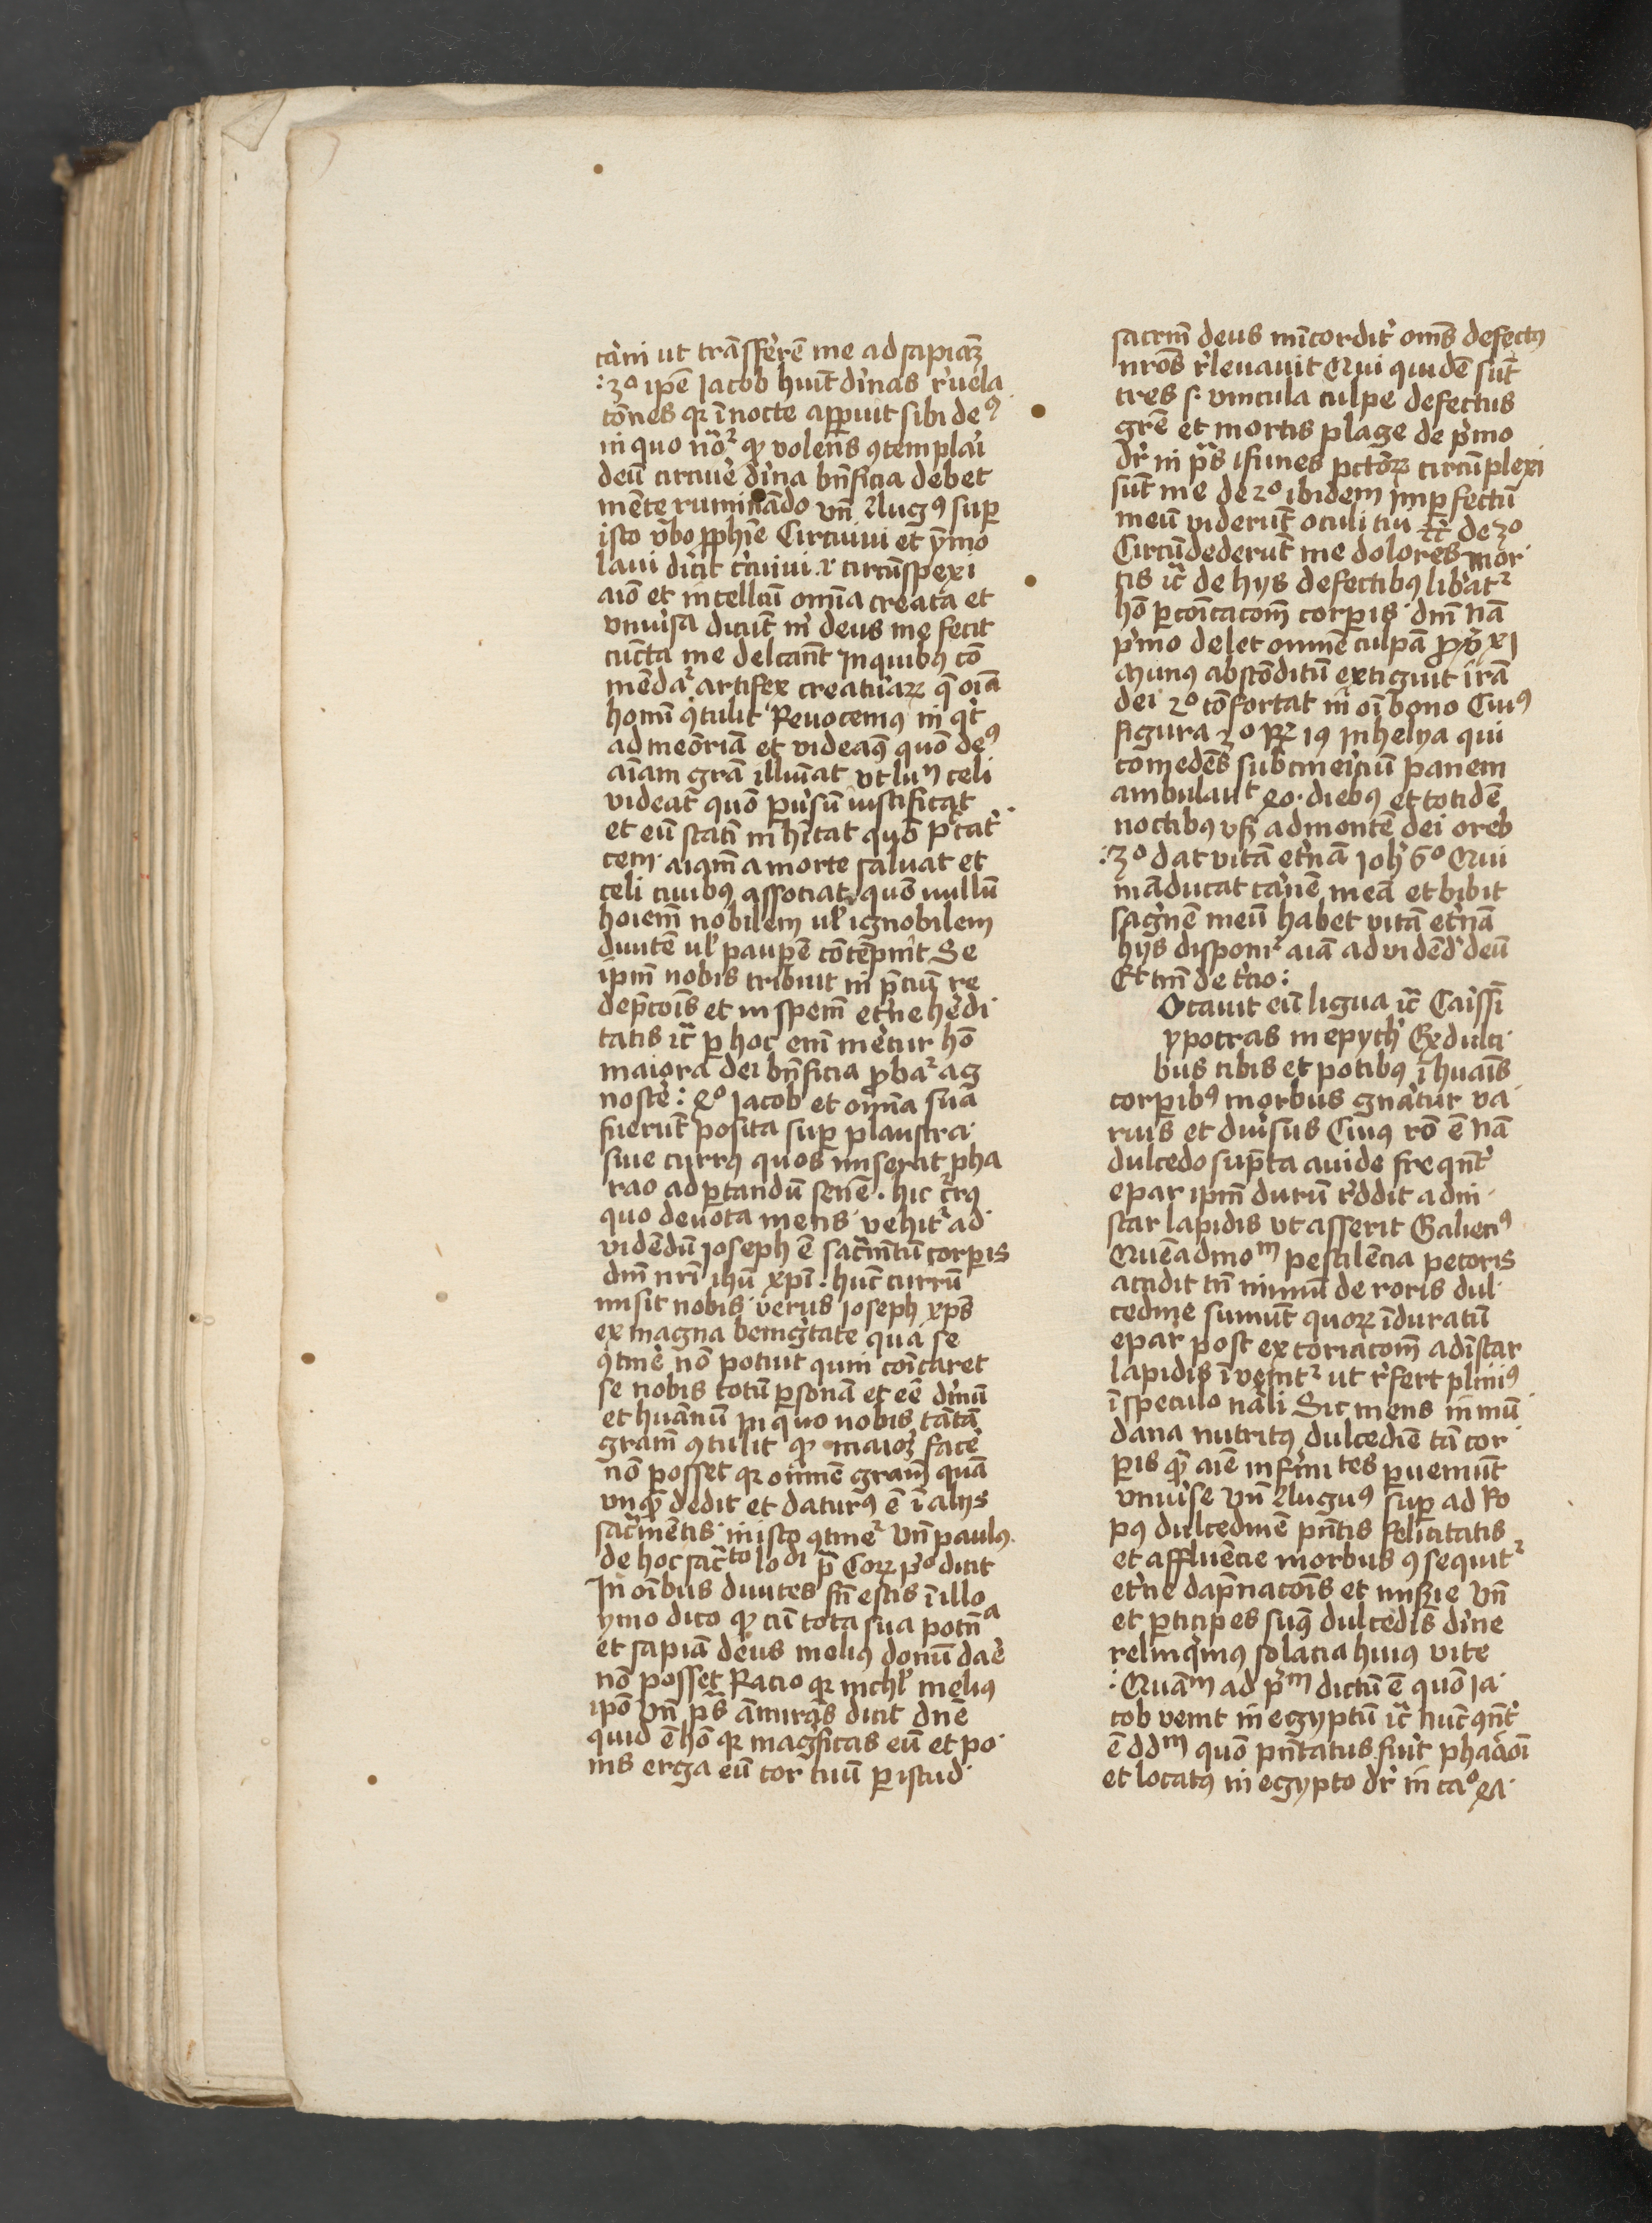 carni ut trāsfferrē me ad sapiaꝫ
:3º ipē Jacob huit̄ diʼnas rʼuela
cōnes qꝛ ī nocte appuit sibi deꝰ
in quo noʳ̄ qꝫ volens ꝯtemplai
deū circuiʼe diʼna bn̄ficia debet
mēte ruminādo vn̄ Augꝰ suꝑ
isto vʼbo ꝓphīe Circuiui et ymo
laui dicit cʼcuiui ꝛ circūspexi
aīo et intellcū om̄ia creata et
vniuʼsa dicūt mʼ deus me fecit
cūcta me delcan̄t In quibꝰ cō
mēdaʳ artifex creaturaꝝ q̄ oīa
homī ꝯtulit Reuocemꝰ inqʼt
ad meōriā et videaꝰ quō deꝰ
aīam gr̄a illuīat vt lumⁿ celi
videat quō puʼsū iustificat
et eū statī inhītat quō pctatʼ
cem aīam a morte saluat et
celi ciuibꝰ associat quō nullū
hoiem̄ nobilem ul̓ ignobilem
diuitē ul̓ pauꝑē cōtēpnit Se
ipm̄ nobis tribuit in p̄ciū re
dēpcōis et in spem̄ etʼne hedi
tatis ic̄ ꝑ hoc eni metʼur hō
maiora dei bn̄ficia ꝓbaʳ ag
noscē : 4º Jacob et om̄ia sua
fuerūt posita suꝑ plaustra
siue currꝰ quos miserat pha
rao ad ꝑtandū senē . hic cʼrꝰ
quo deuota mens vehitʳ ad
vidēdū Joseph ē sacʼmētū corꝑis
dnī nrī ihū xpī . hūc currū
misit nobis verus Joseph xp̄s
ex magna benigʼtate qua se
ꝯtinē nō potuit quin cōicaret
se nobis totū ꝑsonā et eē dinū
et huānū In quo nobis tātā
gram̄ ꝯtulit qꝫ maioꝝ facē
nō posset qꝛ om̄nē gram̄ quā
vnqꝫ dedit et daturꝰ ē ī alijs
sacʼmētis in isto ꝯtineʳ Vn̄ paulꝰ
de hoc sacᵗᵒ lo di p̄ Coꝝ pº dicit
In oībus diuites fc̄i estis ī illo
ymo dico qꝫ cū tota sua potn̄a
et sapiā deus meliꝰ donū daē
nō posset Racio qꝛ nichl̓ meliꝰ
ipō Vn̄ p̄s āmirās dicit dn̄e
quid ē hō qꝛ magʼficas eū et po
nis erga eū cor tuū ꝑ istud
sacrm̄ deus mīcorditʼ om̄s defectꝰ
nrōs rʼleuauit Qui quidē sūt
tres s. vincula culpe defectus
grē et mortis plage de pʼmo
dr̄ in p̄s ifunes pctōꝝ circūplexi
sūt me de 2º ibidem Imꝑfectū
meū viderūt oculi tui ⁊c̄ de 3º
Circūdederūt me dolores mor
tis ic̄ de hys defectibꝰ libʼatʳ
hō ꝑ cōicacōm̄ corꝑis dn̄i nā
pʼmo delet omnē culpā ꝓv̄ xxi
Munꝰ abscōditū extiguit irā
dei 2º cōfortat in oī bono Cuiꝰ
figura 3º Rꝝ 19 In helya qui
comedēs subcineʼiciū panem
ambulauit 40 diebꝰ et totidē
noctibꝰ vsqꝫ ad montē dei oreb
:3º dat vitā etʼnā Joh̓ 6º Qui
māducat carʼnē meā et bibit
sagʼnē meū habet vitā etʼnā
hys disponiʳ aīa ad vidēdʼ deū
Et tm̄ de tʼcio :
Otauit eū ligua ic̄ Caissī
ypocras in epyth̓ Ex dulci
bus cibis et potibꝰ ī huāis
corꝑibꝰ morbus gnātur va
rius et diuʼsus Cuiꝰ rō ē nā
dulcedo sup̄ta auide freqn̄tʼ
epar ipm̄ durū rʼddit ad in
star lapidis vt asserit Galienꝰ
Quēadmoᵐ pestilēcia pecoris
accidit tn̄ nimiū de roris dul
cedine sumūt quoꝝ īduratū
epar post excoriacom̄ ad īstar
lapidis īvenitʳ ut rʼfert pliniꝰ
ī speculo nāli Sic mens in mū
dana nutritꝰ dulcediē tā cor
ꝑis qꝫ aīe infirʼmitates ꝑueniūt
vniuʼse Vn̄ Auguꝰ suꝑ ad Ro
pꝰ dulcedinē pn̄tis felicitatis
et affluēcie morbus ꝯsequitʳ
etʼne dāpnacōis et misʼie Vn̄
et ꝑticipes suꝰ dulcēdīs diʼne
relinqʼmus solacia huiꝰ vite
: Quāᵐ ad pʼᵐ dictū ē quō Ja
cob venit in egyptū ic̄ nūc ꝯn̄tʼ
ē dd̄ᵐ quō pn̄tatus fuit pharāoī
et locatꝰ in egypto dr̄ in caº 4a